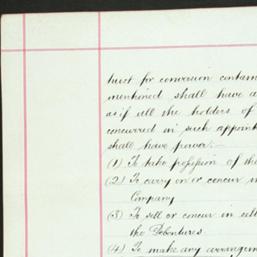 trust for conversion contain
mentioned shall have a
as if all the holders of
concurred in such appoint
shall have power:—
(1) To take possession of the
(2) To carry on or concur in
Company
(3) To sell or concur in sell
the Debentures
(4) To make any arrangem